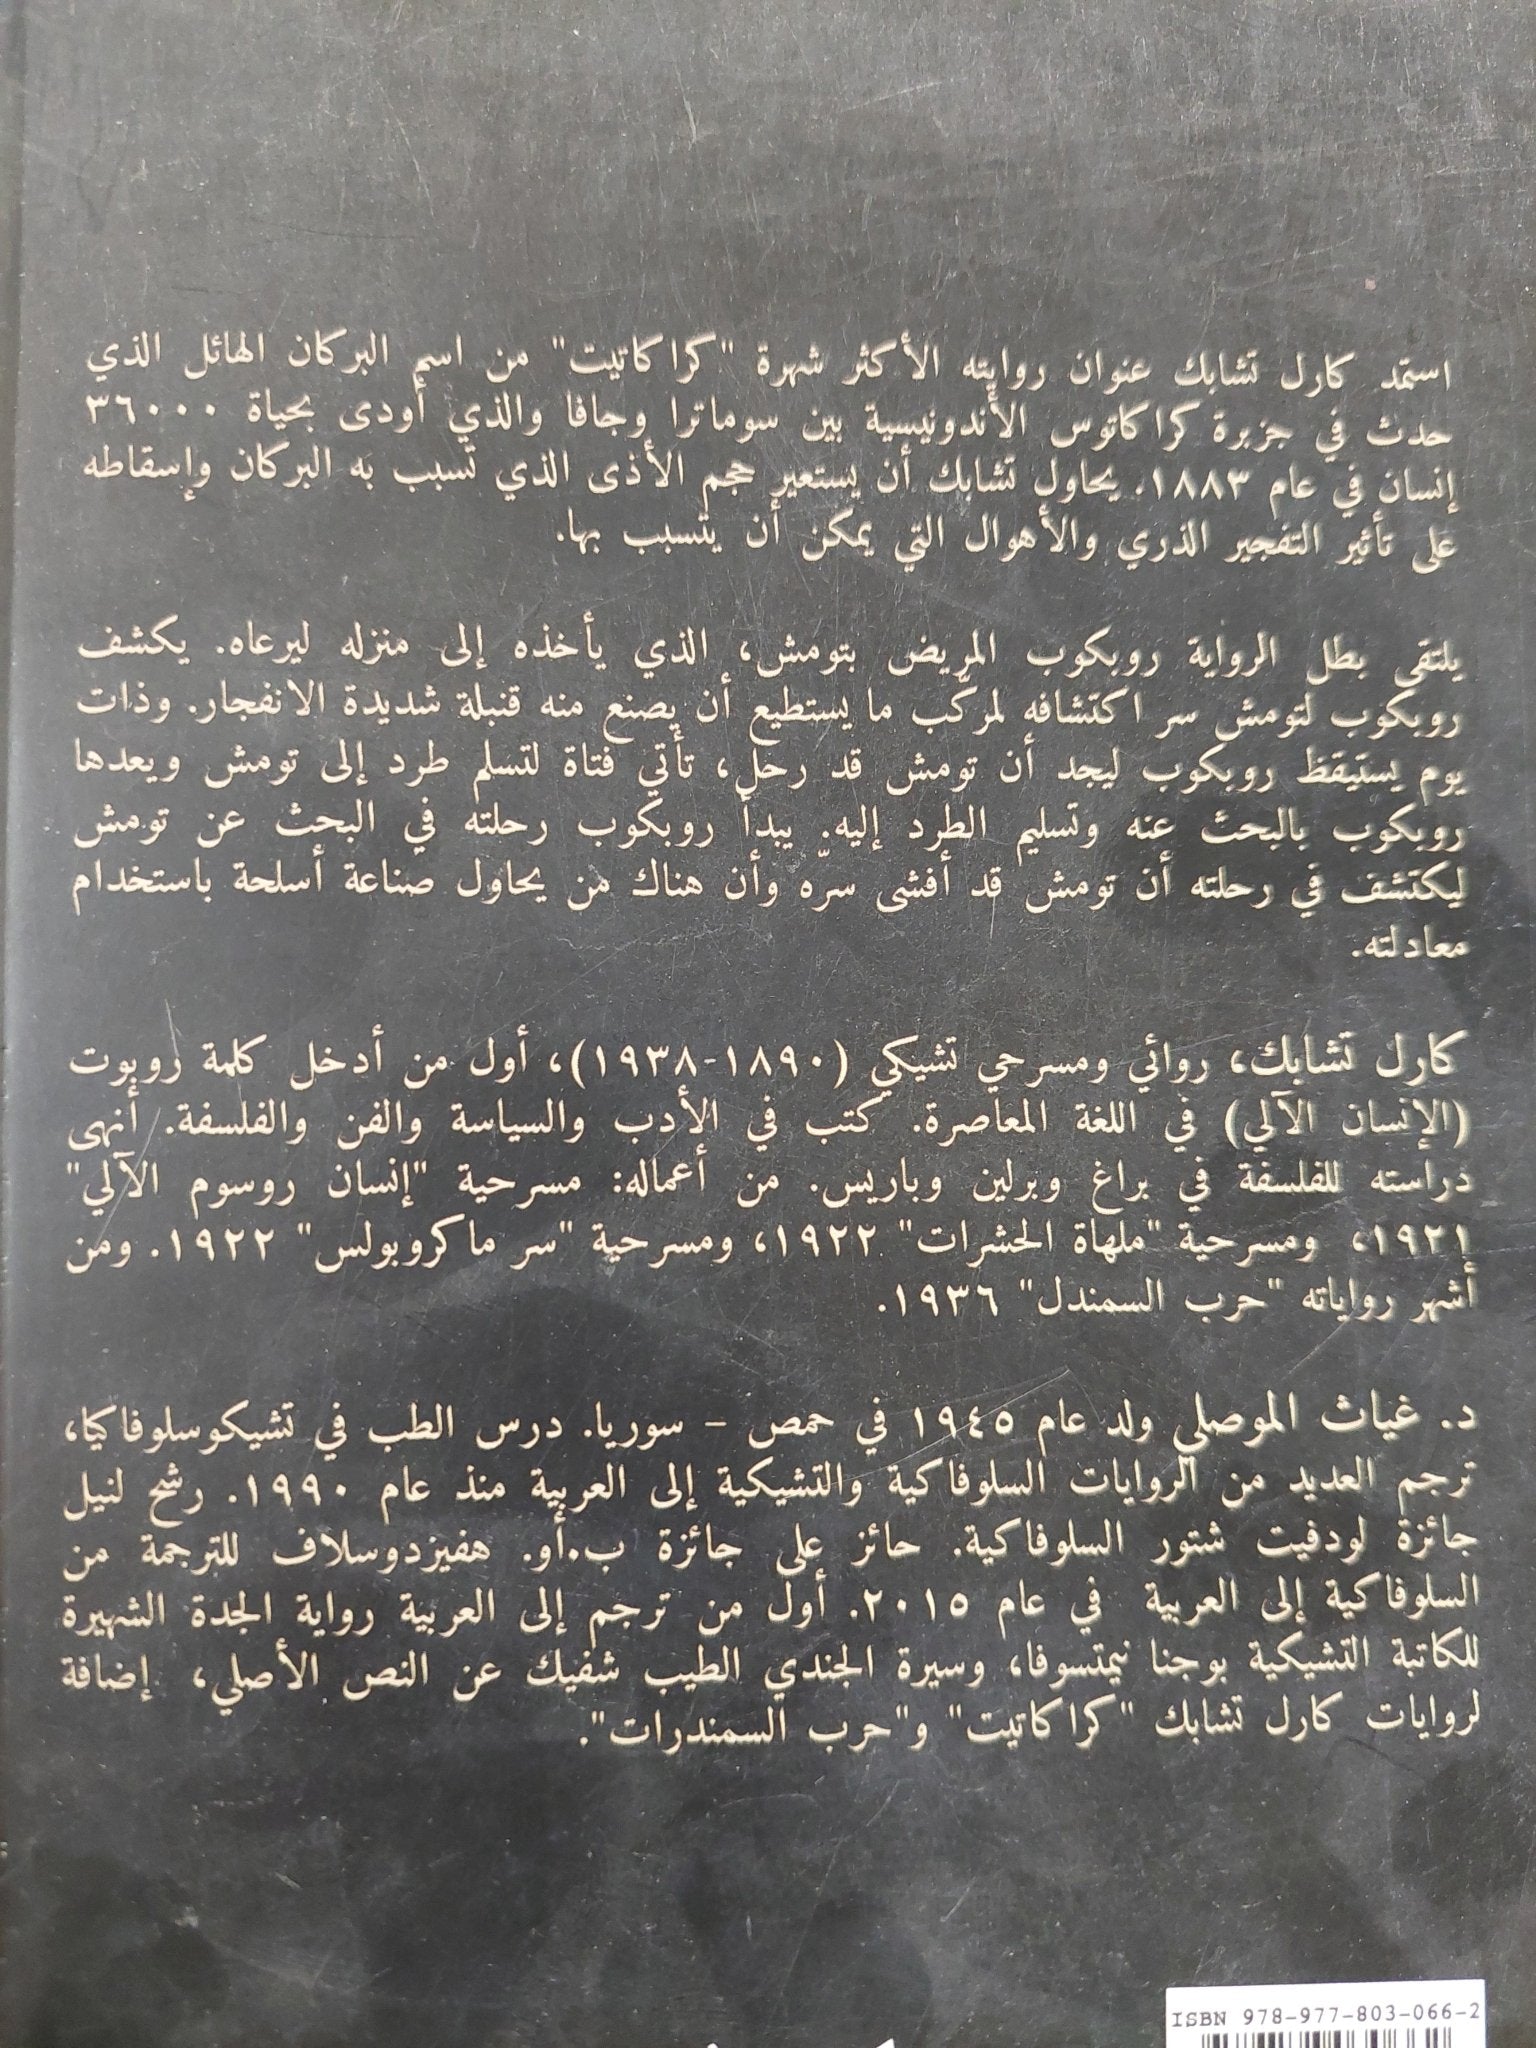 استمد كارل تشابك عنوان روايته الأكثر شهرة "كراكاتيت" من اسم البركان الهائل الذي
حدث في جزيرة كراكاتوس الأندونيسية بين سوماترا وجافا والذي أودى بحياة ٣٦٠٠٠
إنسان في عام ١٨٨٣. يحاول تشابك أن يستعير حجم الأذى الذي تسبب به البركان وإسقاطه
على تأثير التفجير الذري والأهوال التي يمكن أن يتسبب بها.
يلتقى بطل الرواية روبكوب المريض بتومش، الذي يأخذه إلى منزله ليرعاه. يكشف
روبكوب لتومش سر اكتشافه لمركّب ما يستطيع أن يصنع منه قنبلة شديدة الانفجار. وذات
يوم يستيقظ روبكوب ليجد أن تومش قد رحل، تأتي فتاة لتسلم طرد إلى تومش ويعدها
روبكوب بالبحث عنه وتسليم الطرد إليه. يبدأ روبكوب رحلته في البحث عن تومش
ليكتشف في رحلته أن تومش قد أفشى سرّه وأن هناك من يحاول صناعة أسلحة باستخدام
معادلته.
كارل تشابك، روائي ومسرحي تشيكي (١٨٩٠-١٩٣٨)، أول من أدخل كلمة روبوت
(الإنسان الآلي) في اللغة المعاصرة. كتب في الأدب والسياسة والفن والفلسفة. أنهى
دراسته للفلسفة في براغ وبرلين وباريس. من أعماله: مسرحية "إنسان روسوم الآلي"
١٩٢١، ومسرحية "ملهاة الحشرات" ١٩٢٢، ومسرحية "سر ماكروبولس" ١٩٢٢. ومن
أشهر رواياته "حرب السمندل" ١٩٣٦.
د. غياث الموصلي ولد عام ١٩٤٥ في حمص - سوريا. درس الطب في تشيكوسلوفاكيا،
ترجم العديد من الروايات السلوفاكية والتشيكية إلى العربية منذ عام ١٩٩٠. رشح لنيل
جائزة لودفيت شتور السلوفاكية. حائز على جائزة ب.أو. هفيزدوسلاف للترجمة من
السلوفاكية إلى العربية في عام ٢٠١٥. أول من ترجم إلى العربية رواية الجدة الشهيرة
للكاتبة التشيكية بوجنا نيمتسوفا، وسيرة الجندي الطيب شفيك عن النص الأصلي، إضافة
لروايات كارل تشابك "كراكاتيت" و"حرب السمندرات".
ISBN 978-977-803-066-2